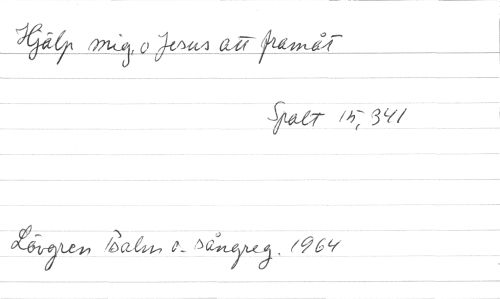 Hjälp mig, o Jesus att framåt
Spalt 15, 341
Lövgren Psalm o. sångreg. 1964